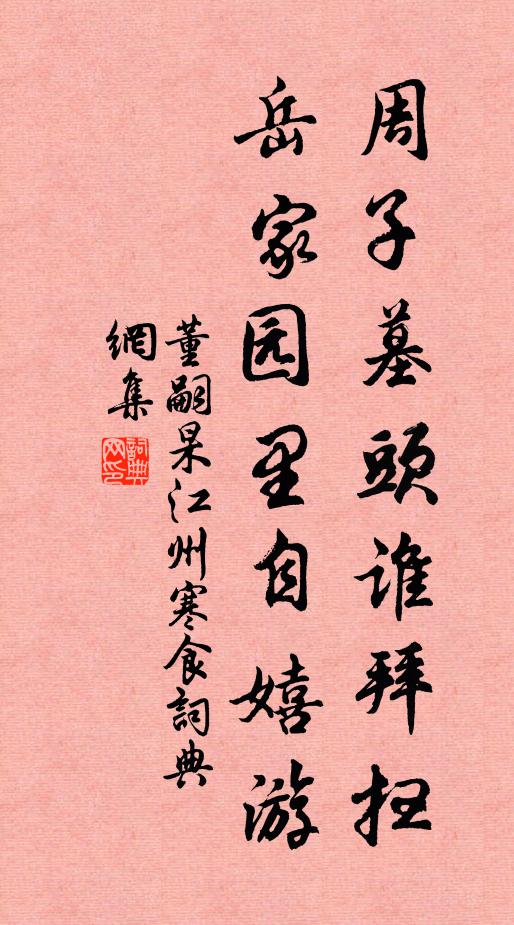 周子墓頭谁拜扫
岳家园里自嬉游
董嗣杲江州寒食詞典
網集
詞典网印